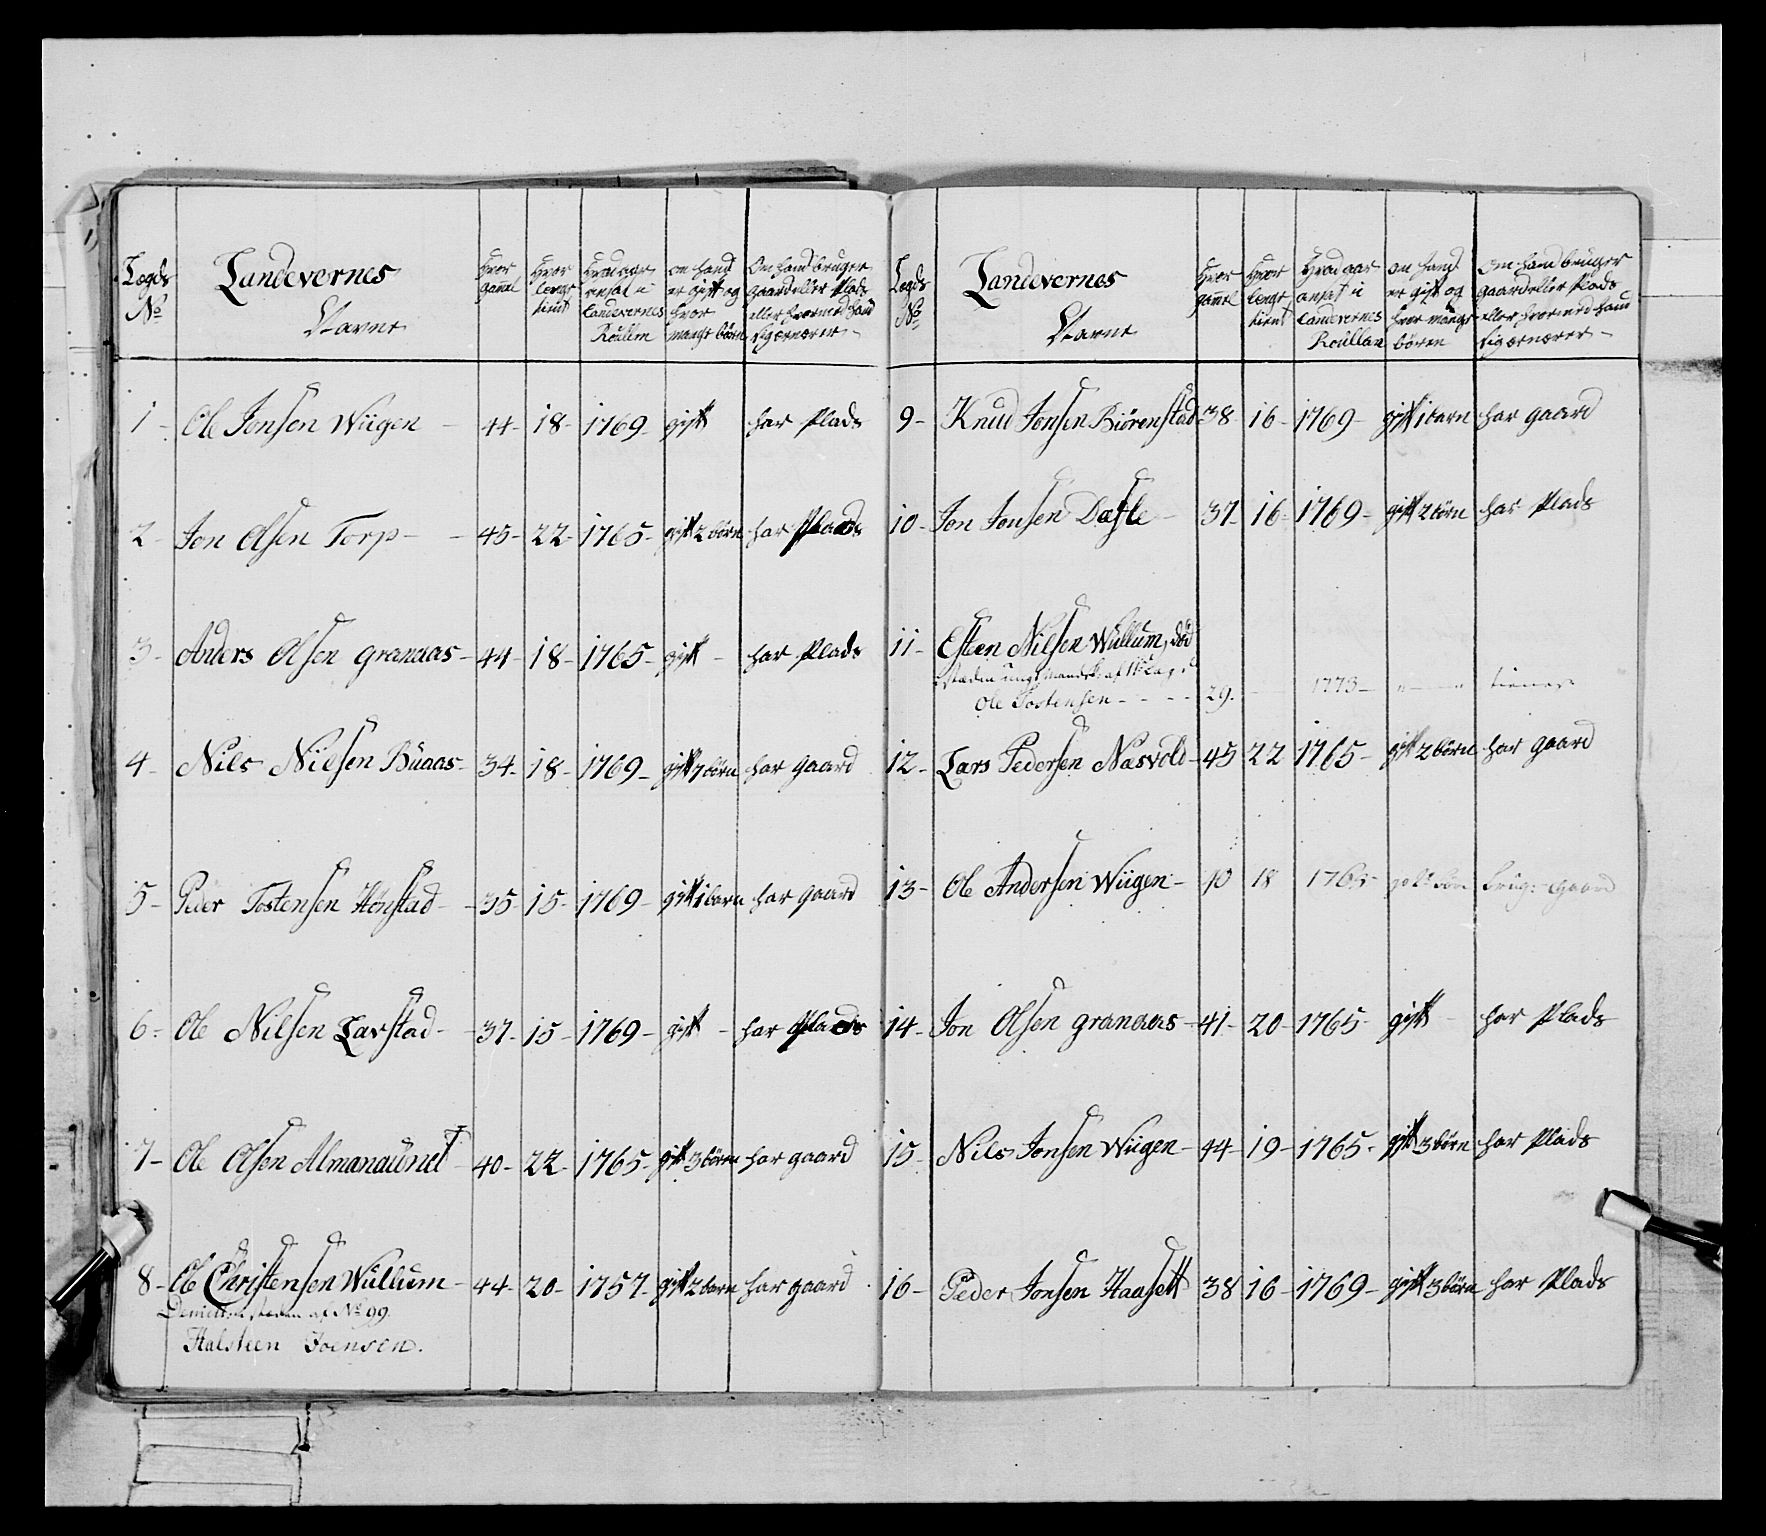 Legds Landevernes Hvor Hvor Hvad aar om hand Om hand bruger
No Navne gamel lenge ansat i er gift og gaard eller Plads
tient Landevernes hvor eller hvormed hand
Roullen mange börn sig ernærer
1 - Ole Jonsen Wiigen - 44 - 18 - 1769 - gift har Plads
2 - Jon Olsen Torp - 45 - 22 - 1765 - gift 2 börn har Plads
3 - Anders Olsen granaas - 44 - 18 - 1765 - gift - har Plads
4 - Nils Nilsen Büaas - 34 - 18 - 1769 - gift 1 börn har gaard
5 - Peder Tostensen Hönstad - 35 - 15 - 1769 - gift 1 barn har gaard
6 - Ole Nilsen Lavstad - 37 - 15 - 1769 - gift - har Plads
7 - Ole Olsen Almanaünet - 40 - 22 - 1765 - gift 3 börn har gaard
8 - Ole Christensen Wüllum - 44 - 20 - 1757 - gift 2 barn har gaard
steden af No 99.
Halsteen Joensen.
Legds Landevernes Hvor Hvor Hvad aar om hand Om hand bruger
No Navne gamel lenge ansat i er gift og gaard eller Plads
tient Landevernes hvor mange eller hvormed hand
Roullan börn sig ernærer -
9 - Knud Jonsen Biörenstad 38 - 16 - 1769 - gift 1 barn har gaard
10 - Jon Jonsen Dasle - 37 - 16 - 1769 - gift 2 börn har Plads
11 - Esten Nilsen Wullum, död
i stæden ungt Mandsk: af
Ole Tostensen - - - 29. - 1773 - " - " tiener
12 - Lars Pedersen Næsvold - 45 22 1765 - gift 2 börn har gaard
13 - Ole Andersen Wiigen - 40 18 1765 - brug: gaard
14 - Jon Olsen granaas - 41 - 20 - 1765 - gift - har Plads
15 - Nils Jonsen Wiigen - 44 - 19 - 1765 - gift 3 börn har Plads
16 - Peder Jonsen Haasett 38 - 16 - 1769 - gift 3 börn har Plads